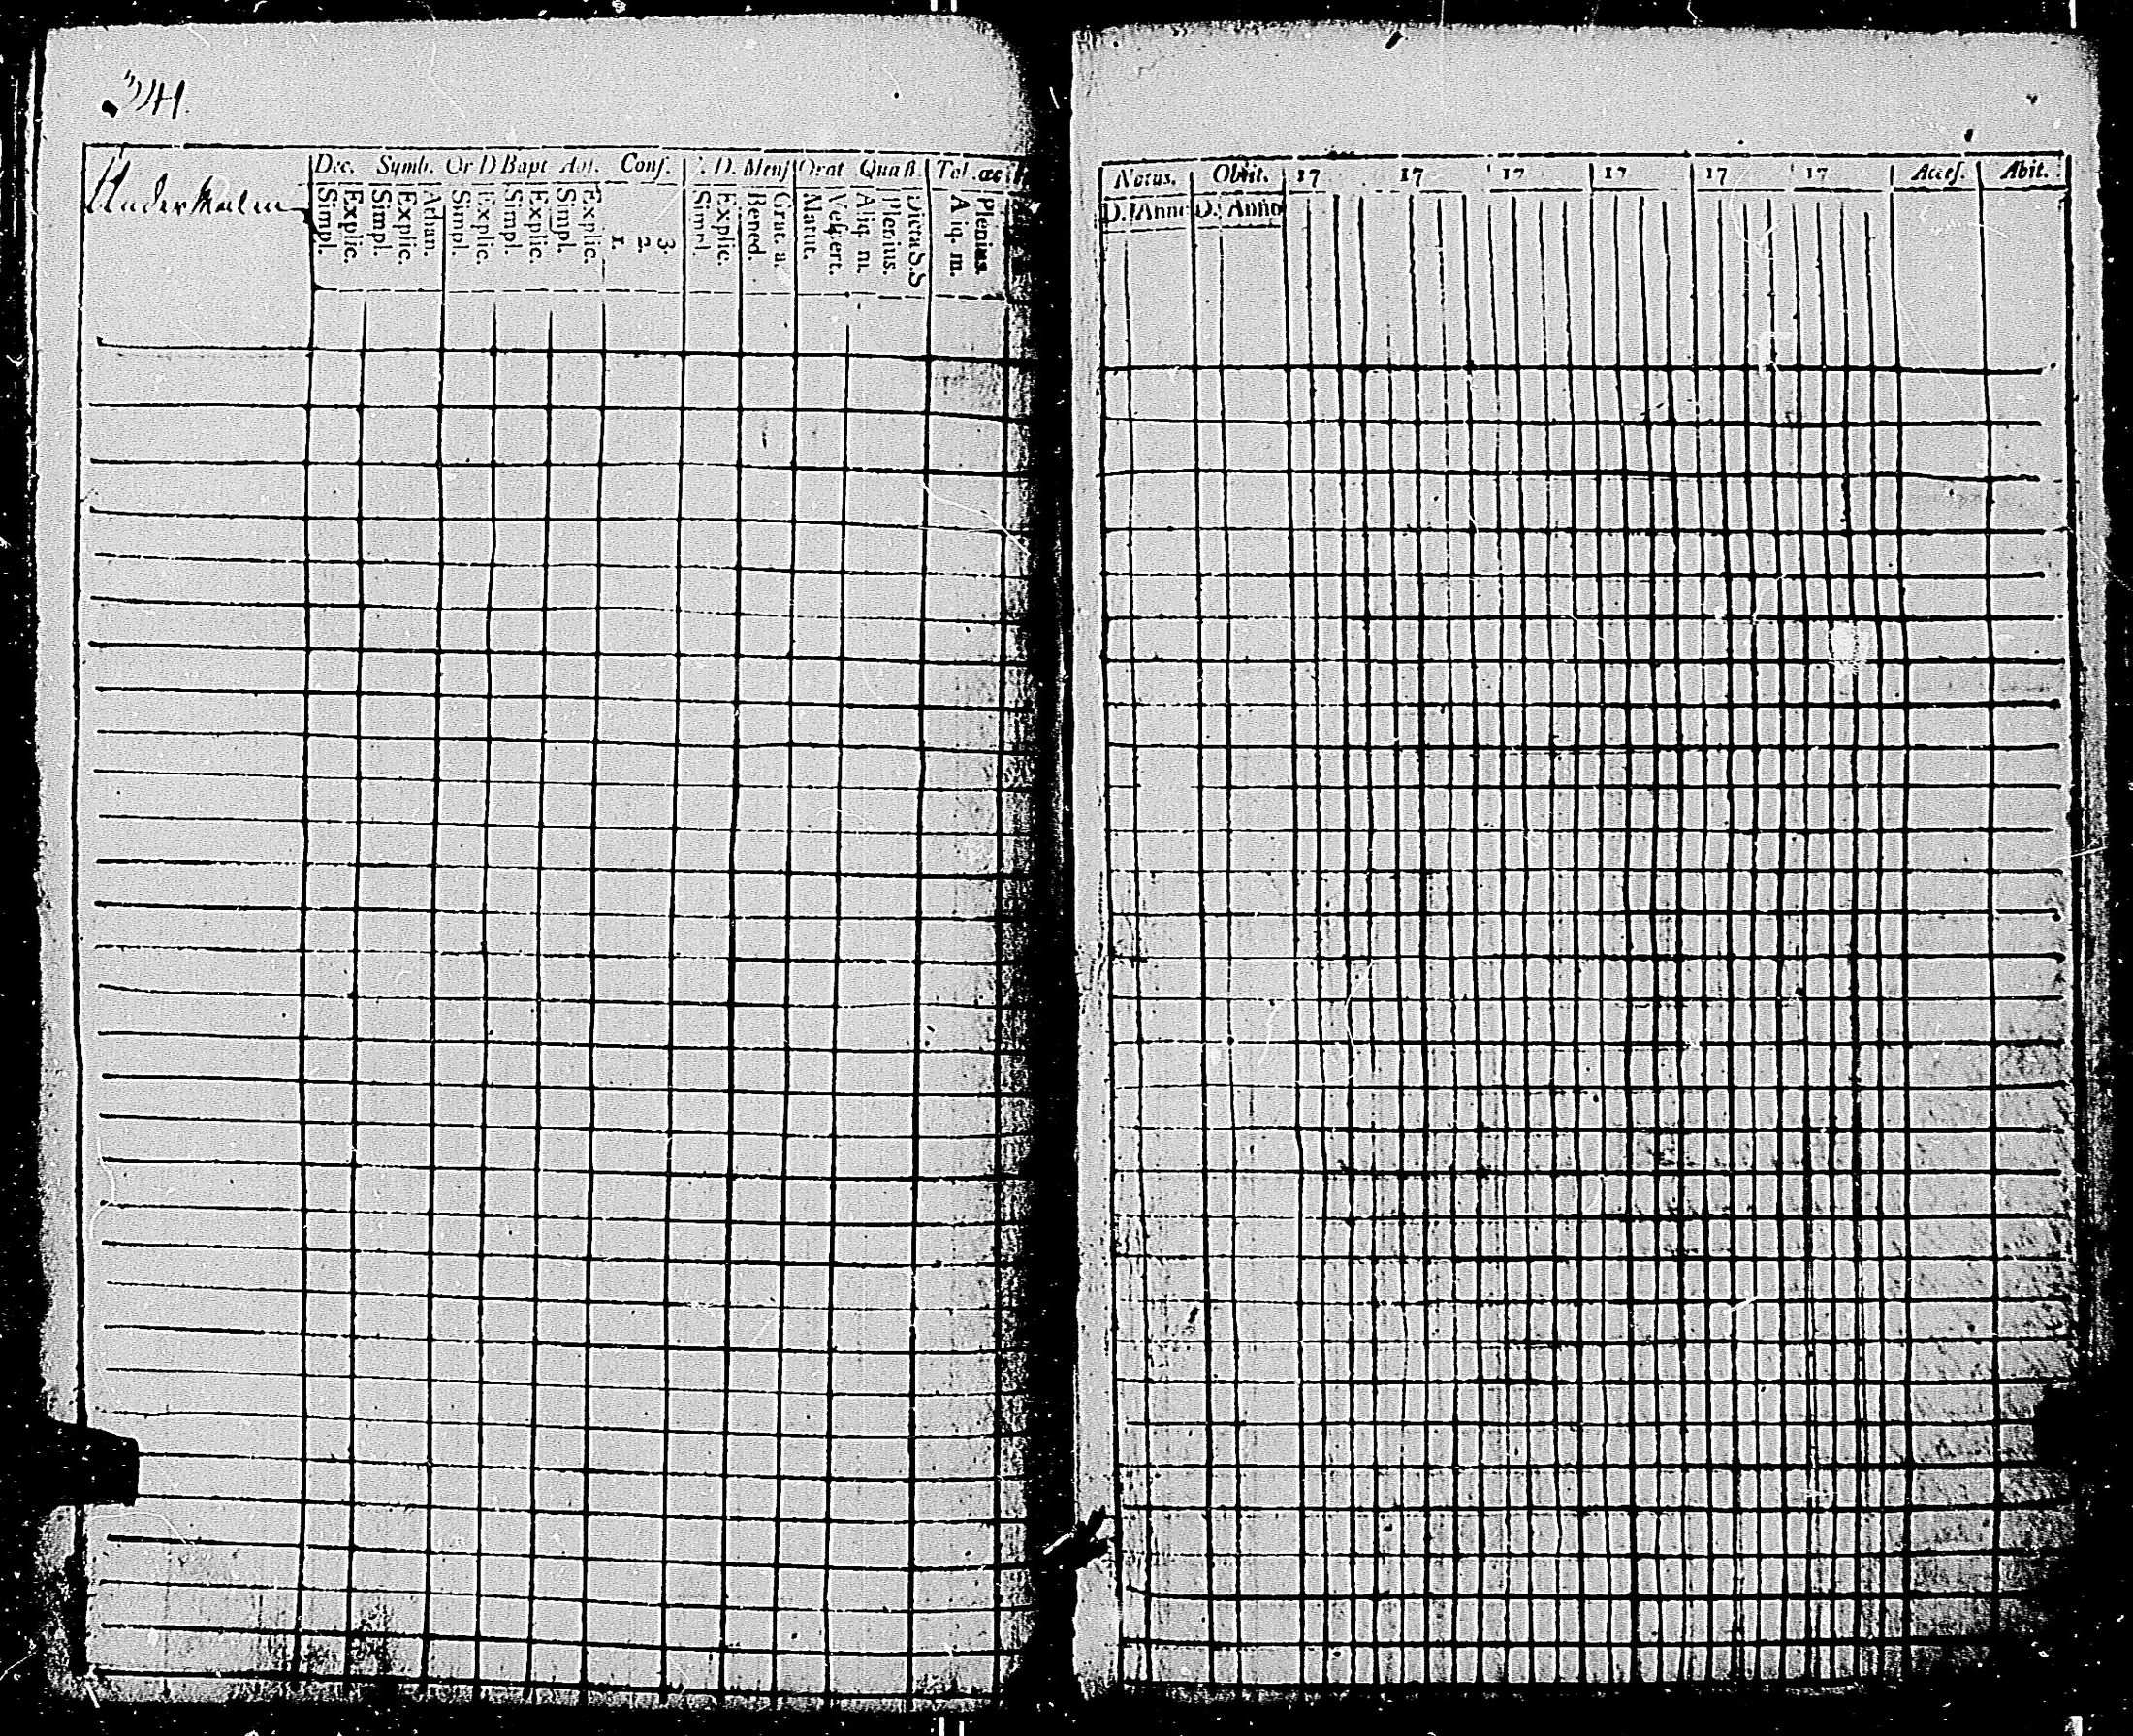 241.
Undermalm
Dec. Symb. Or D Bapt Abs. Conf. D. Mens Orat Quæst. Tal.
Simpl. Explic. Simpl. Explic. Athan. Simpl. Explic. Simpl. Explic. Simpl. Explic. 1. 2. 3. Simpl. Explic. Bened. Grat. a. Matut. Vespert. Aliq. m. Plenius. Dicta S.S Aliq. m. Plenius.
Natus. Obiit. 17 17 17 17 17 17 Accef. Abit.
D. Anno D. Anno